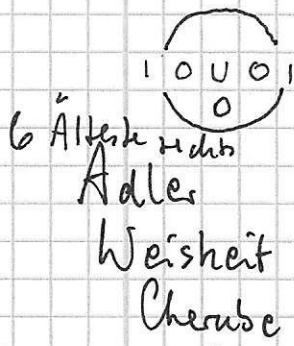 6 Älteste rechts
Adler
Weisheit
Cherube